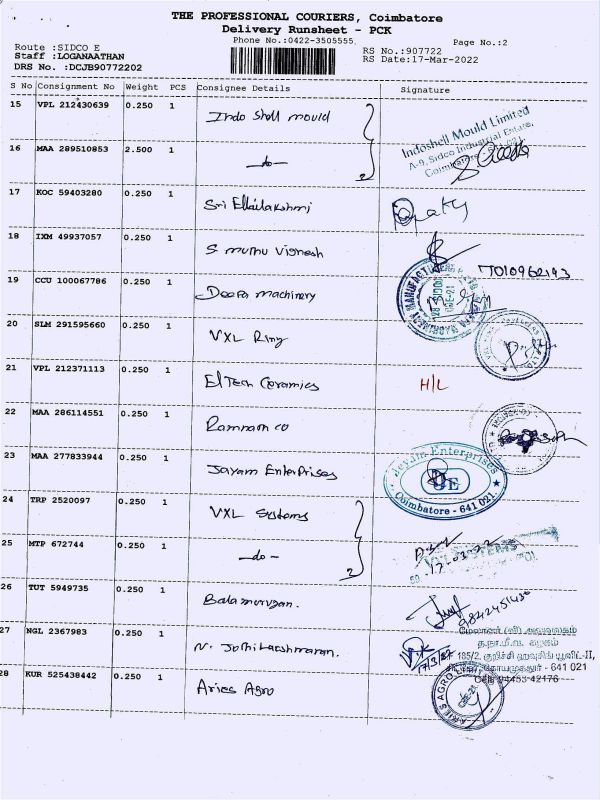 THE PROFESSIONAL COURIERS, Coimbatore
Delivery Runsheet - PCK
Phone No.:0422-3505555,
Page No.:2
Route :SIDCO E
Staff :LOGANAATHAN
DRS No. :DCJB90772202
RS No.:907722
RS Date:17-Mar-2022
S No Consignment No Weight PCS Consignee Details Signature
15 VPL 212430639 0.250 1 Indo Shell mould
Indoshell Mould Limited
A-9, Sidco Industrial Estate,
Coimbatore - 641 021.
16 MAA 289510853 2.500 1 -do-
17 KOC 59403280 0.250 1 Sri Ellailakshmi
18 IXM 49937057 0.250 1 S muthu vignesh
19 CCU 100067786 0.250 1 Deepa machinery
20 SLM 291595660 0.250 1 VXL Ring
21 VPL 212371113 0.250 1 ElTech Ceramics H/L
22 MAA 286114551 0.250 1 Ramnam co
23 MAA 277833944 0.250 1 Jayam Enterprises
Jeyam Enterprises
JE
Coimbatore - 641 021.
24 TRP 2520097 0.250 1 VXL Systems
25 MTP 672744 0.250 1 -do-
17-03-22
26 TUT 5949735 0.250 1 Balamurugan.
9842451436
27 NGL 2367983 0.250 1 N. Jothilakshmanan.
185/2, குறிச்சி ஹவுசிங் யூனிட்-II,
கோயமுத்தூர் - 641 021
Cell: 94453 42176
28 KUR 525438442 0.250 1 Aries Agro
ARIES AGRO